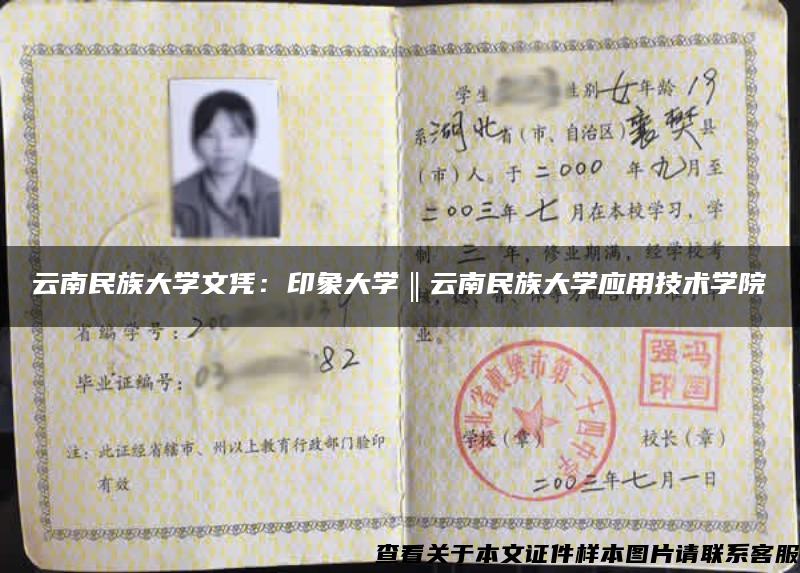 学生 性别女年龄19
系湖北省(市、自治区)襄樊县
(市)人。于二000年九月至
二00三年七月在本校学习,学
制三年,修业期满,经学校考
业。
云南民族大学文凭:印象大学‖云南民族大学应用技术学院
省编学号:200
毕业证编号:03 82
注:此证经省辖市、州以上教育行政部门验印
有效
湖北省襄樊市第二十四中学
冯国强印
学校(章)
校长(章)
二00三年七月一日
查看关于本文证件样本图片请联系客服